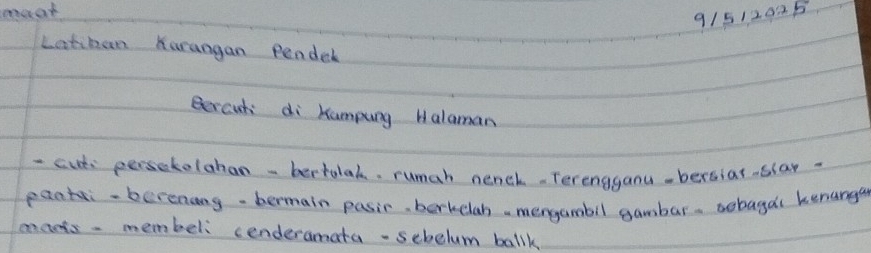 maat
9/5/2025
Latihan Karangan Pendek
Bercuti di Kampung Halaman
- cuti persekolahan - bertolak - rumah nenek - Terengganu - bersiar-siar -
pantai - berenang - bermain pasir - berkelah - mengambil gambar - sebagai kenangan
manis - membeli cenderamata - sebelum balik